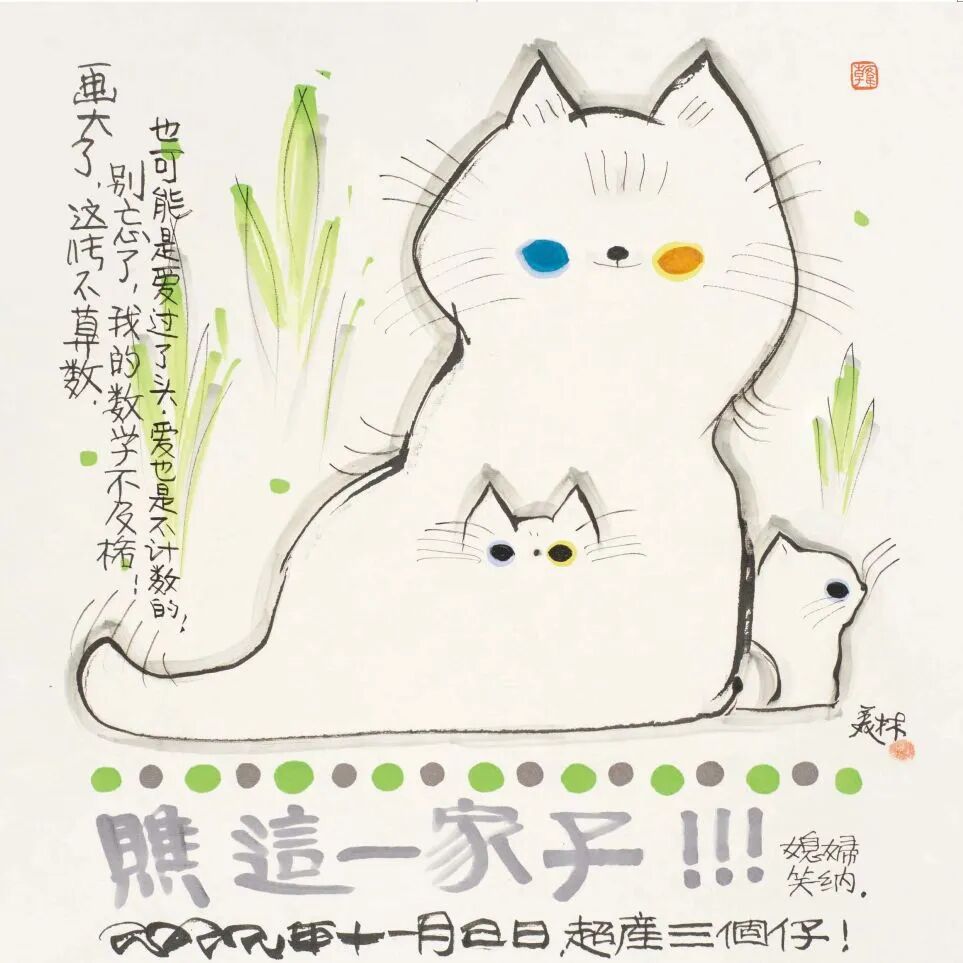 画大了，这不算数.
别忘了，我的数学不及格！
也可能是爱过了头.爱也是不计数的!
韩
美林
瞧這一家子!!!
媳婦
笑纳.
年十一月日.超產三個仔!